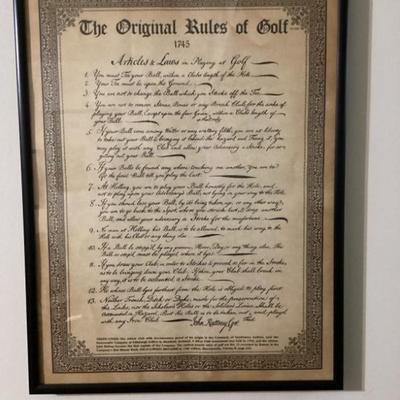 The Original Rules of Golf
1745
Articles & Laws in Playing at Golf
1. You must Tee your Ball, within a Clubs length of the Hole
2. Your Tee must be upon the Ground
3. You are not to change the Ball which you Stroke off the Tee
4. You are not to remove Stones, Bones or any Break Club, for the sake of
playing your Ball, Except upon the fair Green, within a Clubs length of
your Ball
5. If your Ball come among Water or any watery filth, you are at liberty
to take out your Ball & bringing it behind the hazard and Teeing it, you
may play it with any Club and allow your Adversary a Stroke, for so
getting out your Ball
6. If your Balls be found any where touching one another, You are to
lift the first Ball till you play the last
7. At Holling, you are to play your Ball honestly for the Hole, and
not to play upon your Adversarys Ball, not lying in your way to the Hole
8. If you should lose your Ball, by its being taken up, or any other way,
you are to go back to the Spot, where you struck last & drop another
Ball, and allow your adversary a Stroke for the misfortune
9. No man at Holling his Ball, is to be allowed, to mark his way to the
Hole with his Club or any thing else
10. If a Ball be stopp'd by any person, Horse, Dog, or any thing else, The
Ball so stopp'd must be played, where it lyes
11. If you draw your Club, in order to Stroke & proceed so far in the Stroke,
as to be bringing down your Club; If then, your Club shall break, in
any way, it is to be accounted a Stroke
12. He whose Ball lyes farthest from the Hole is obliged to play first
13. Neither Trench, Ditch or Dyke, made for the preservation of
the Links, nor the Scholars Holes or the Soldiers Lines, shall be
accounted a Hazard, But the Ball is to be taken out and play'd
with any Iron Club
John Rattray, Cpt